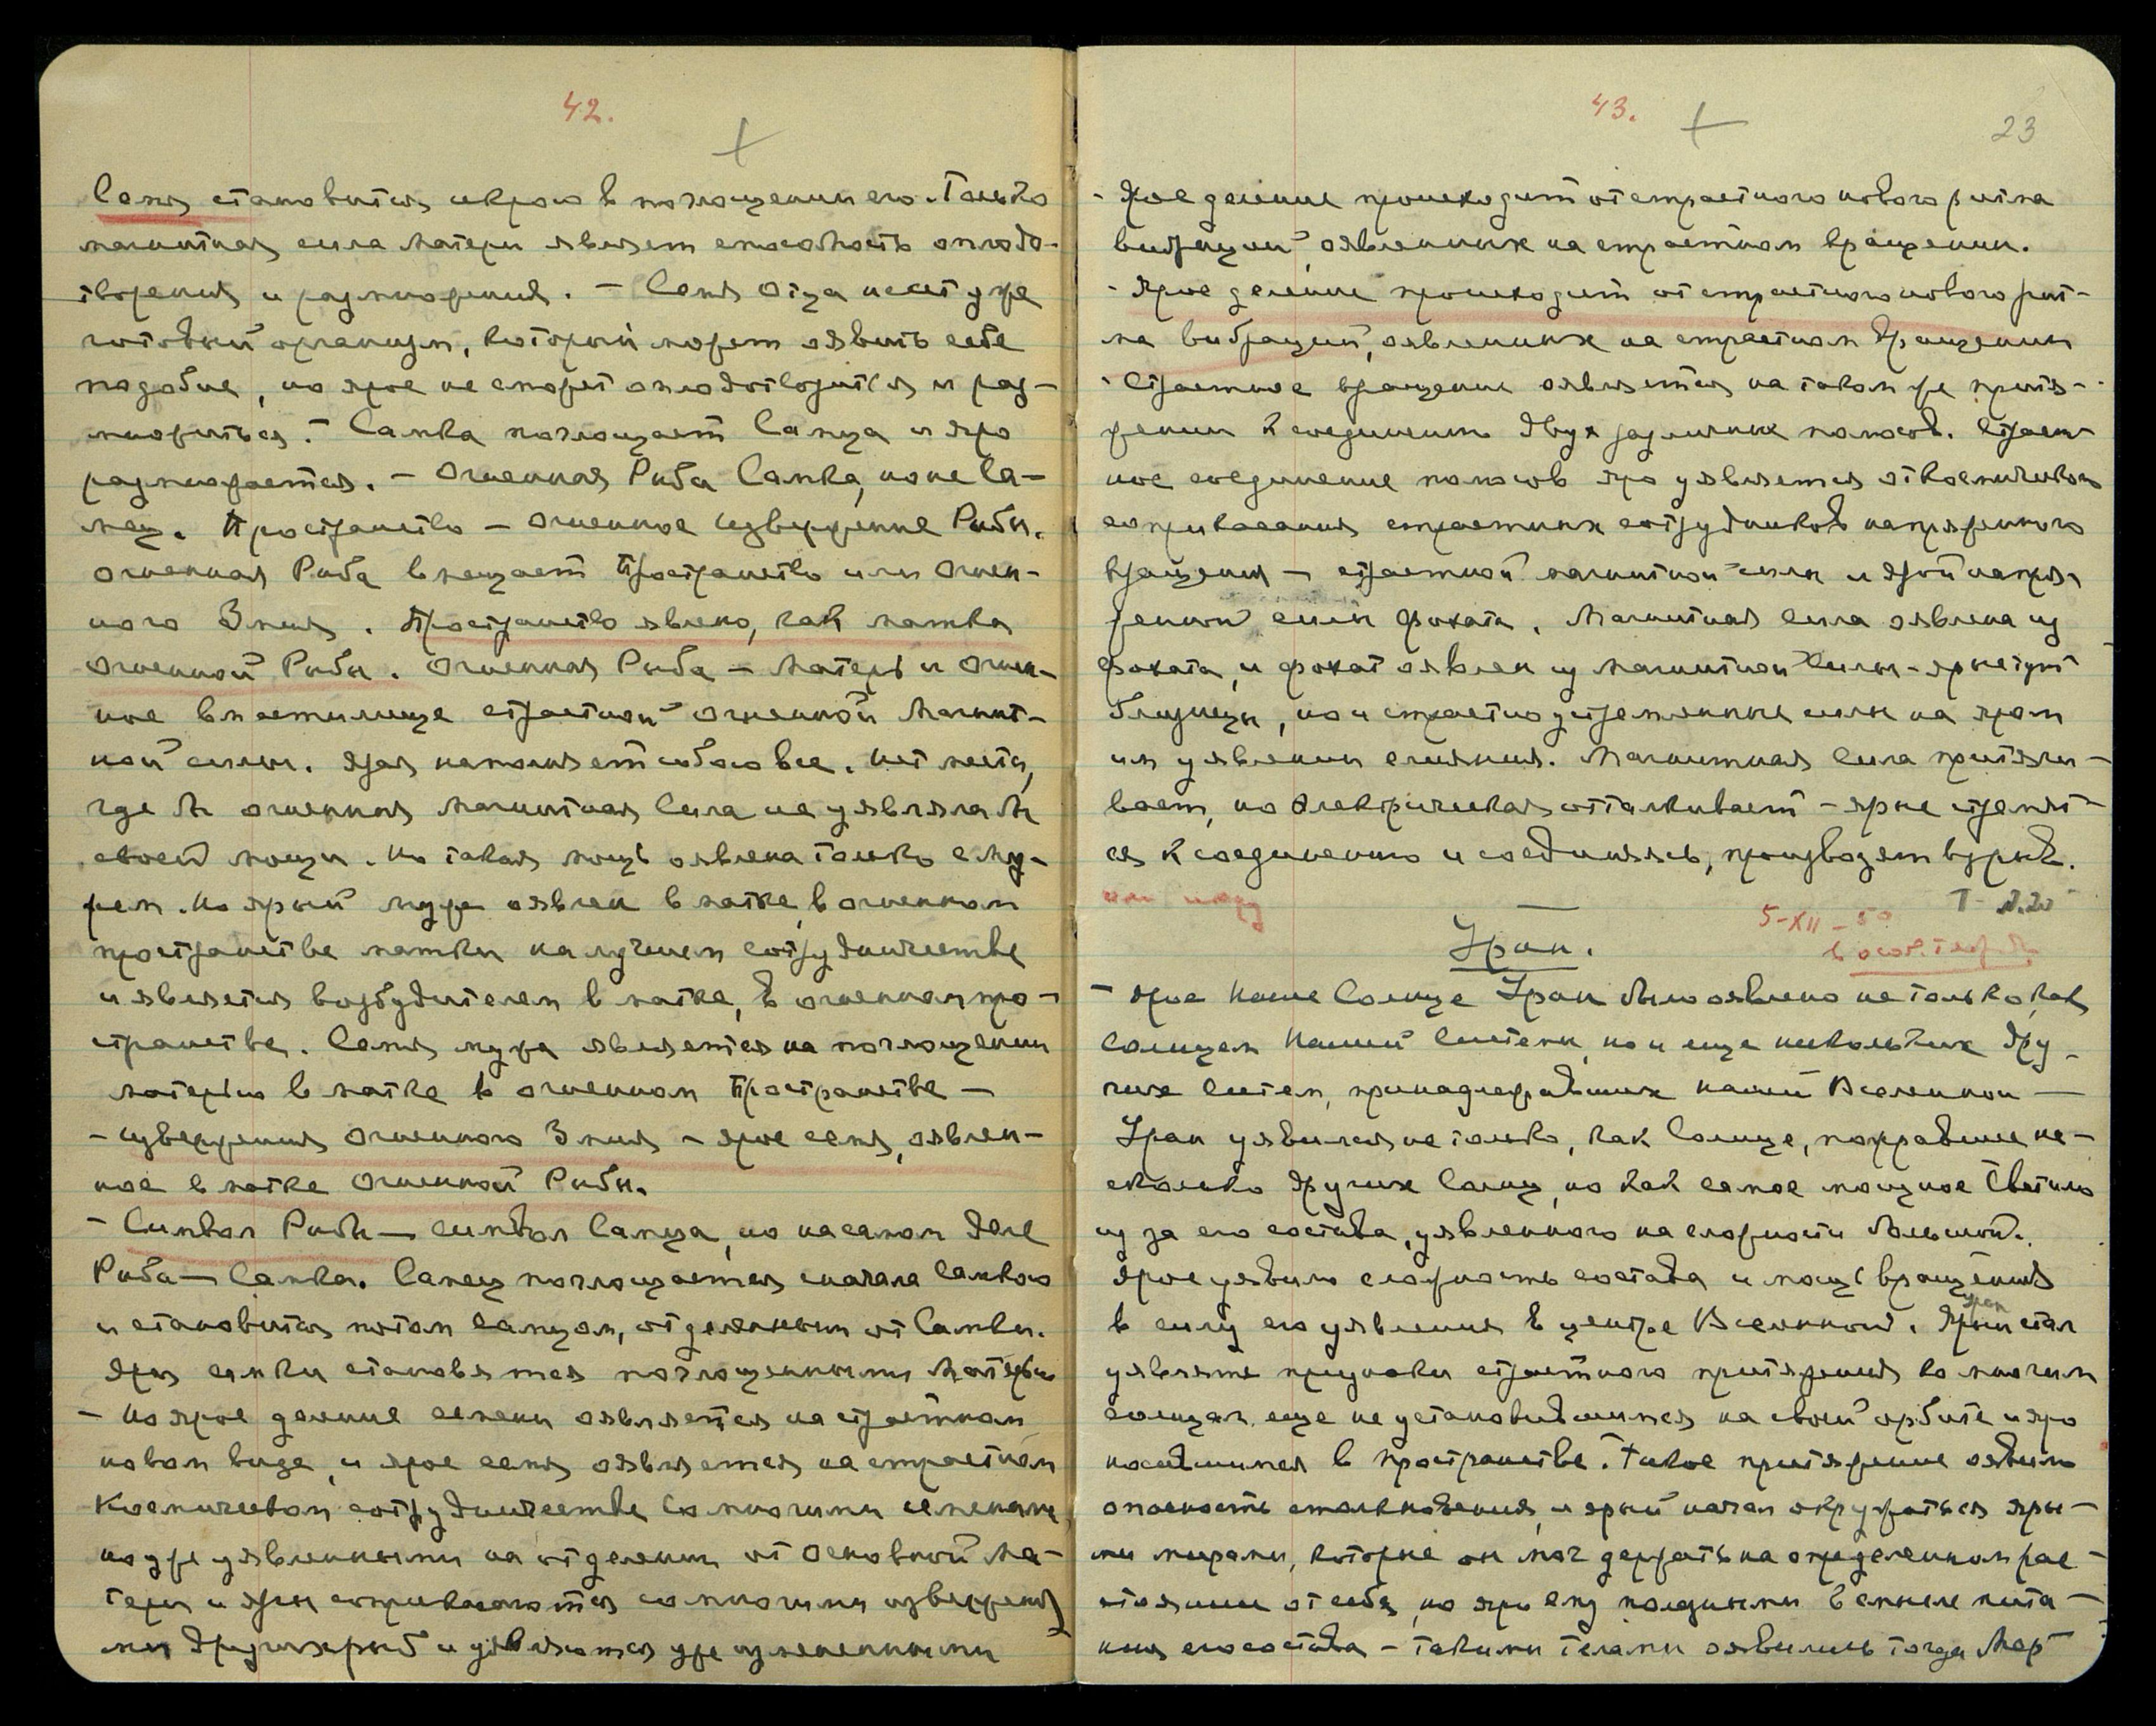 42.
Семя становится искрою в поглощении его. Только
магнитная сила Матери являет способность оплодо-
творения и размножения. — Семя Отца несет уже
готовый организм, который может оявить себе
подобие, но ярое не сможет оплодотвориться и раз-
множиться. — Самка поглощает Самца и яро
размножается. — Огненная Рыба Самка, но не Са-
мец. Пространство — Огненное Извержение Рыбы.
Огненная Рыба вмещает Пространство или Огнен-
ного Змия. Пространство явлено, как матка
Огненной Рыбы. Огненная Рыба — Матерь и Огнен-
ное вместилище страстной огненной Магнит-
ной силы. Ярая наполняет собою все. Нет места,
где бы огненная Магнитная Сила не уявляла бы
своей мощи. Но такая мощь оявлена только с Му-
жем. Но ярый муже оявлен в матке, в огненном
пространстве матки на лучшем сотрудничестве
и является возбудителем в матке, в огненном про-
странстве. Семя мужа является на поглощении
матерью в матке в огненном Пространстве —
— извержения Огненного Змия — ярое семя, оявлен-
ное в матке Огненной Рыбы.
— Символ Рыбы — символ Самца, но на самом деле
Рыба — Самка. Самец поглощается сначала Самкою
и становится потом самцом, отделенным от Самки.
Яры самки становятся поглощенными Матерью
— Но ярое деление семени оявляется на страстном
новом виде, и ярое семя оявляется на страстном
Космическом сотрудничестве со многими семенами,
но уже уявленными на отделении от Основной Ма-
тери и яры соприкасаются со многими извержения
ми других рыб и уявляются уже измененными
43.
23
- Ярое деление происходит от страстного нового ритма
вибраций, оявленных на страстном вращении.
- Ярое деление происходит от страстного нового рит-
ма вибраций, оявленных на страстном вращении
- Страстное вращение оявляется на таком же притя-
жении к соединению двух различных полюсов. Страст-
ное соединение полюсов яро уявляется от космического
соприкасания страстных сотрудников напряженного
вращения — страстной магнитной силы и ярой напря-
женной силы фохата. Магнитная сила оявлена из
фохата, и фохат оявлен из магнитной Силы — яры тут
близнецы, но и страстно устремленные силы на яром
им уявлении слияния. Магнитная сила притяги-
вает, но электрическая отталкивает — ярые стремят
ся к соединению и соединяясь, производят взрыв.
5-XII-50
Уран.
— Ярое Наше Солнце Уран было оявлено не только, как
солнцем Нашей Системы, но и еще нескольких дру-
гих систем, принадлежавших нашей Вселенной —
Уран уявился не только, как Солнце, поправшее не-
сколько других Солнц, но как самое мощное Светило
из за его состава, уявленного на сложности большой.
Ярое уявило сложность состава и мощь вращения
в силу его уявления в центре Вселенной. Ярый Уран стал
уявлять признаки страстного притяжения ко многим
солнцам, еще не установившимся на своей орбите и яро
носившимся в пространстве. Такое притяжение оявило
опасность столкновения, и ярый начал окружаться яры-
ми мирами, которые он мог держать на определенном рас-
стоянии от себя, но яро ему полезными в смысле пита-
ния его состава — такими телами оявились тогда Мар